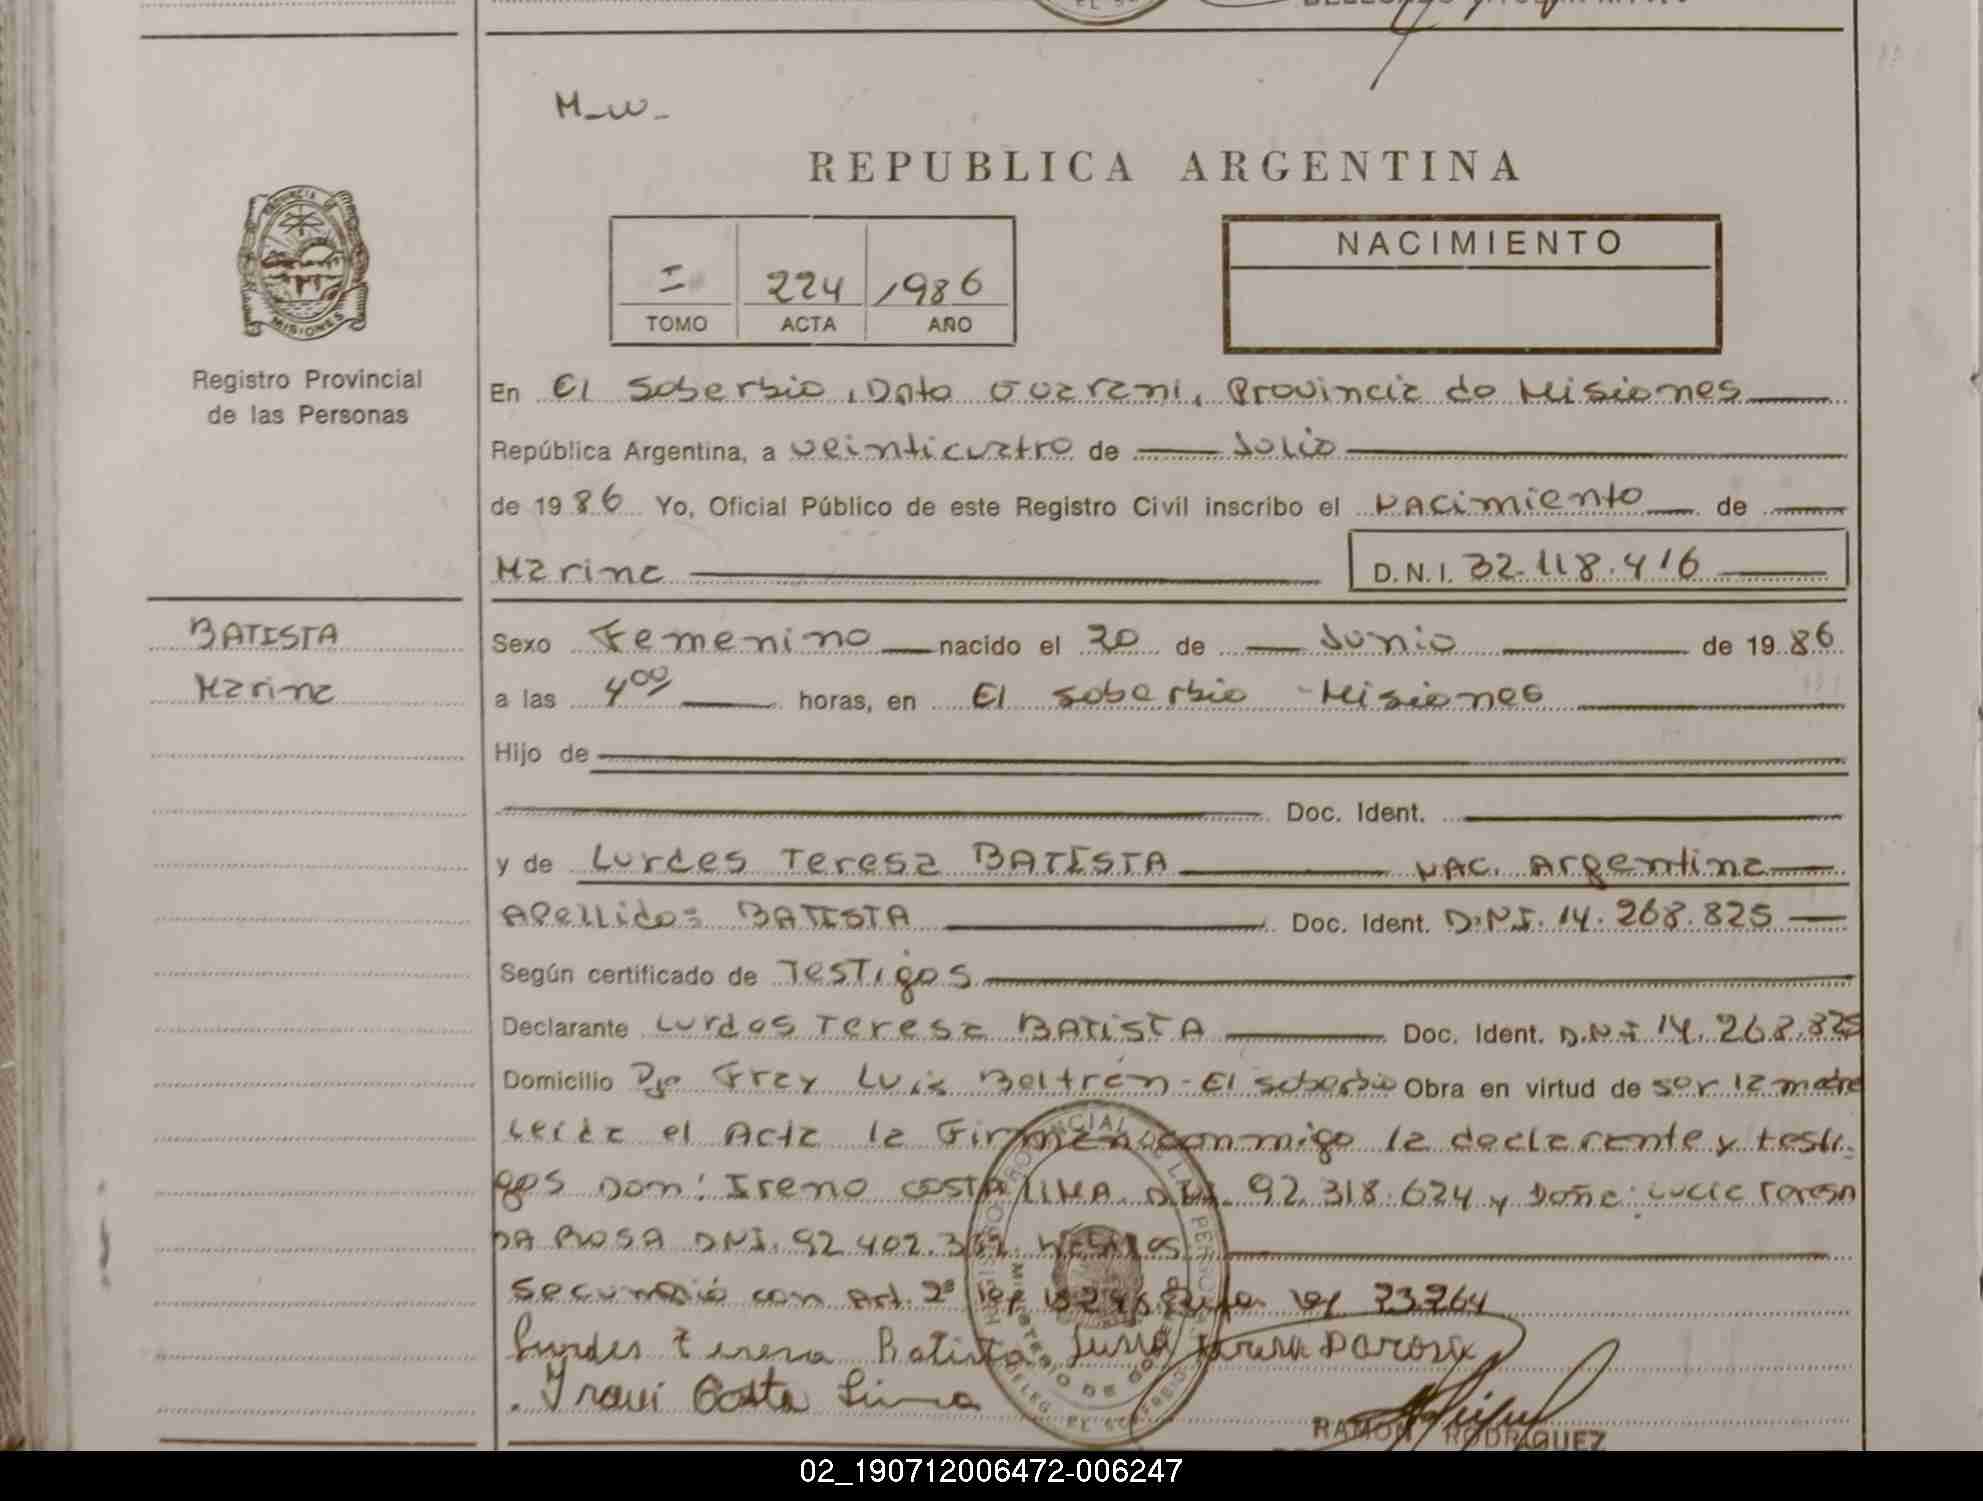 M_W_
REPUBLICA ARGENTINA
PROVINCIA DE
MISIONES
Registro Provincial
de las Personas
I 224 1986
TOMO ACTA AÑO
NACIMIENTO
En El Soberbio, Dpto Guarani, Provincia de Misiones
República Argentina, a veinticuatro de Julio
de 1986 Yo, Oficial Público de este Registro Civil inscribo el Nacimiento de
Marina D.N.I. 32.118.416
BATISTA
Marina
Sexo Femenino nacido el 20 de Junio de 1986
a las 4 00 horas, en El Soberbio - Misiones
Hijo de
Doc. Ident.
y de Lurdes Teresa BATISTA NAC. Argentina
Apellido= BATISTA Doc. Ident. D.N.I. 14.268.825
Según certificado de Testigos
Declarante Lurdes Teresa BATISTA Doc. Ident. D.N.I 14.268.825
Domicilio Fray Luis Beltrán - El Soberbio Obra en virtud de ser la madre
Leida el Acta la Firman conmigo la declarante y testi-
gos Don: Ireno COSTA LIMA D.N.I. 92.318.624 y Doña: Lucia Teresa
DA ROSA DNI. 92.402.
con Art. 2º ley ley 23264
Lurdes Teresa Batista Teresa Darosa
Costa Lima
RAMON RODRIGUEZ
02_190712006472-006247